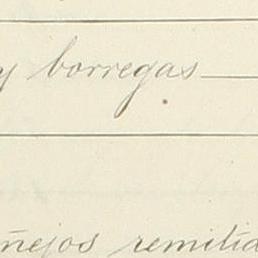 y borregas
añejos remitid